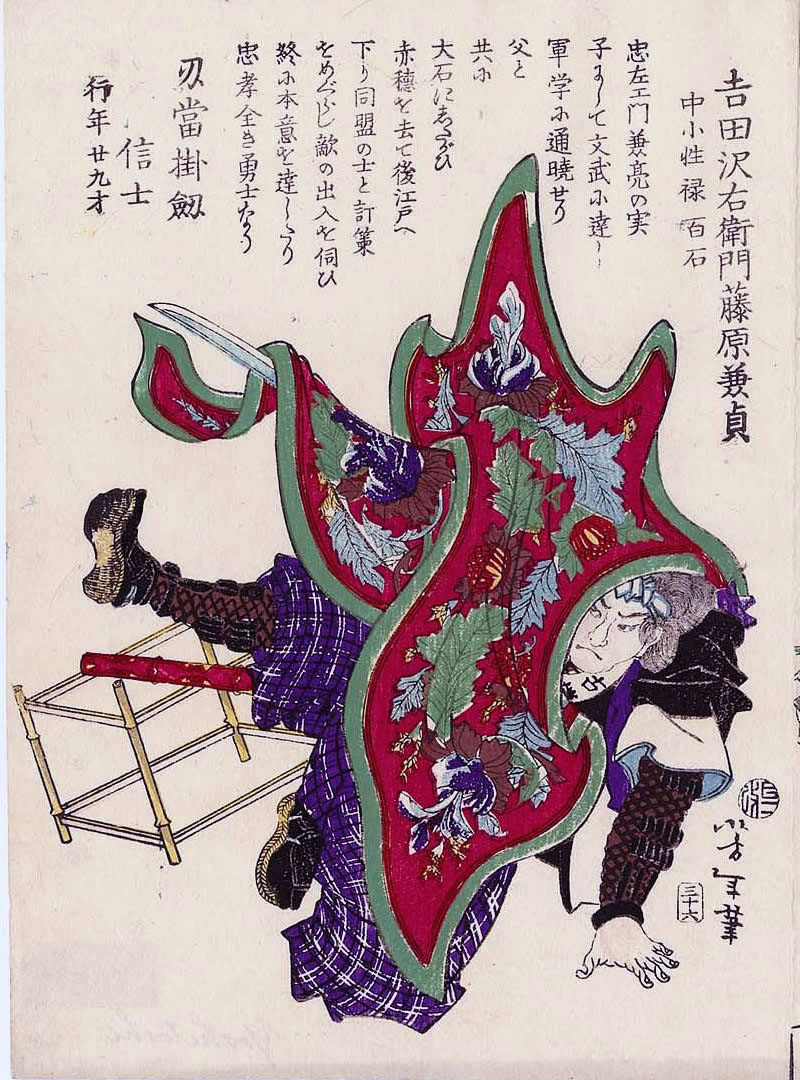 吉田沢右衛門藤原兼貞
中小性禄百石
忠左エ門兼亮の実
子にして文武に達し
軍学に通暁せり
父と
共に
大石にしたがひ
赤穂を去て後江戸へ
下り同盟の士と計策
をめぐらし敵の出入を伺ひ
終に本意を達したり
忠孝全き勇士なり
刃當掛劔
信士
行年廿九才
芳年筆
三十六